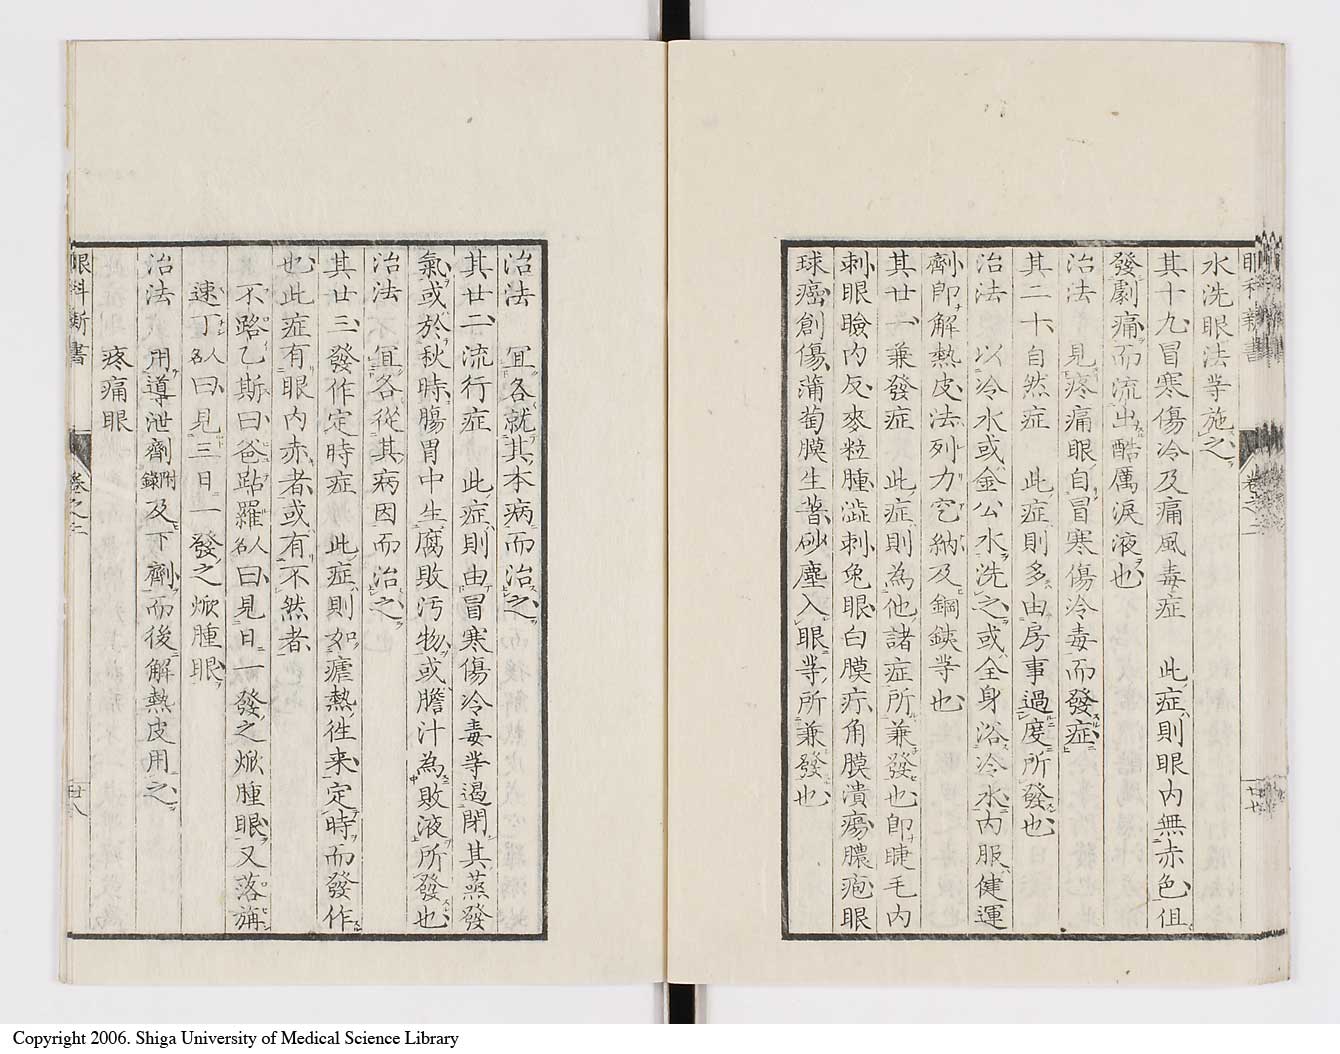 水洗眼法等施之
其十九冒寒傷冷及痛風毒症　此症則眼内無赤色但
發劇痛而流出酷厲淚液也
治法　見疼痛眼自冒寒傷冷毒而發症
其二十自然症　此症則多由房事過度所發也
治法　以冷水或金公水洗之或全身浴冷水内服健運
劑即解熱皮法列力窊納及鋼鐵等也
其廿一兼發症　此症則為他諸症所兼發也即睫毛内
刺眼瞼内反麥粒腫澁刺兔眼白膜疔角膜潰瘍膿疱眼
球癌創傷蒲萄膜生瞖砂塵入眼等所兼發也
治法　宜各就其本病而治之
其廿二流行症　此症則由冒寒傷冷毒等遏閉其蒸發
氣或於秋時腸胃中生腐敗汚物或膽汁為敗液所發也
治法　宜各從其病因而治之
其廿三發作定時症　此症則如瘧熱徃来定時而發作
也此症有眼内赤者或有不然者
不路乙斯曰爸跕羅人名曰見日一發之焮腫眼又落旃
速丁人名曰見三日一發之焮腫眼
治法　用導泄劑附錄及下劑而後解熱皮用之
疼痛眼
眼科新書
卷之二
廿八
眼科新書
卷之二
廿七
Copyright 2006. Shiga University of Medical Science Library